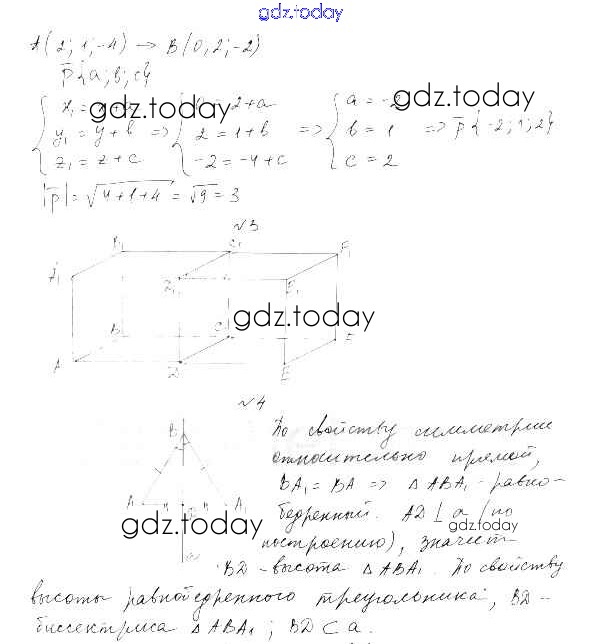 gdz.today
A(2; 1; -4) → B(0; 2; -2)
p̄{a; в; c}
{ x₁ = x + a { 0 = 2 + a { a = -2
{ y₁ = y + в => { 2 = 1 + в => { в = 1 => p̄{-2; 1; 2}
{ z₁ = z + c { -2 = -4 + c { c = 2
gdz.today gdz.today
|p̄| = √4+1+4 = √9 = 3
№3
B₁ C₁ F₁
A₁ D₁ E₁
gdz.today
B C F
A D E
№4
B
A D A₁
a
По свойству симметрии
относительно прямой,
BA₁ = BA => △ABA₁ - равно-
бедренный. AD ⊥ a (по
построению), значит
gdz.today gdz.today
BD - высота △ABA₁. По свойству
высоты равнобедренного треугольника, BD -
биссектриса △ABA₁; BD ⊂ a.
gdz.today